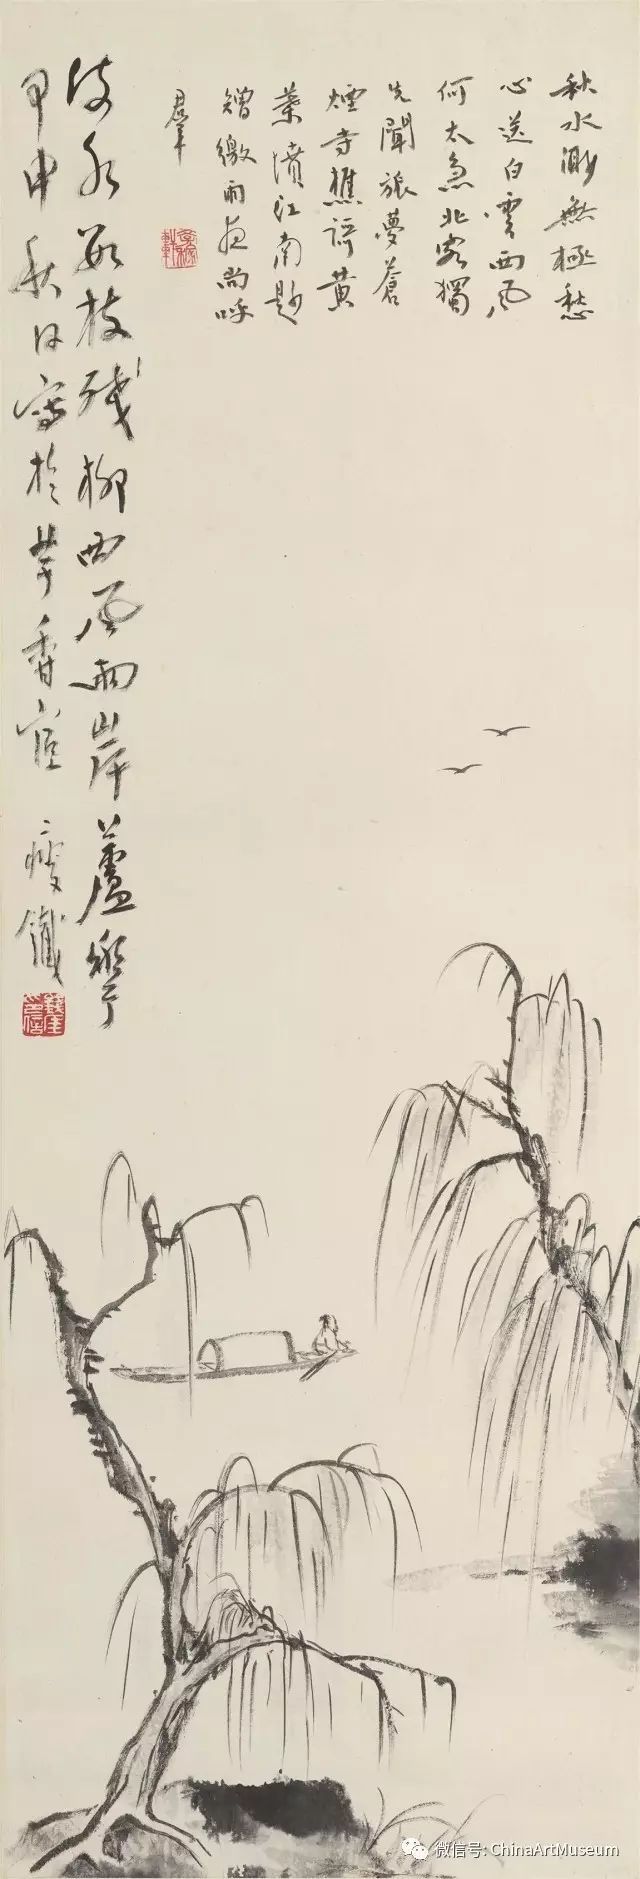 秋水渺無極愁
心送白雲西風
何太急北客獨
先聞旅夢蒼
煙寺樵語黃
葉墳江南尠
矰繳雨夜尚呼
羣
水數枝殘柳西風兩岸蘆華
甲申秋日寫於芋香宧 瘦鐵
微信号: ChinaArtMuseum